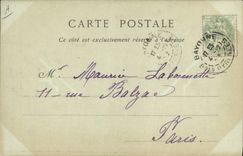 A
CARTE POSTALE
Ce côté est exclusivement réservé à l'adresse
BAYONNE
Mr Maurice Labonnette
11 rue Balzac
Paris.